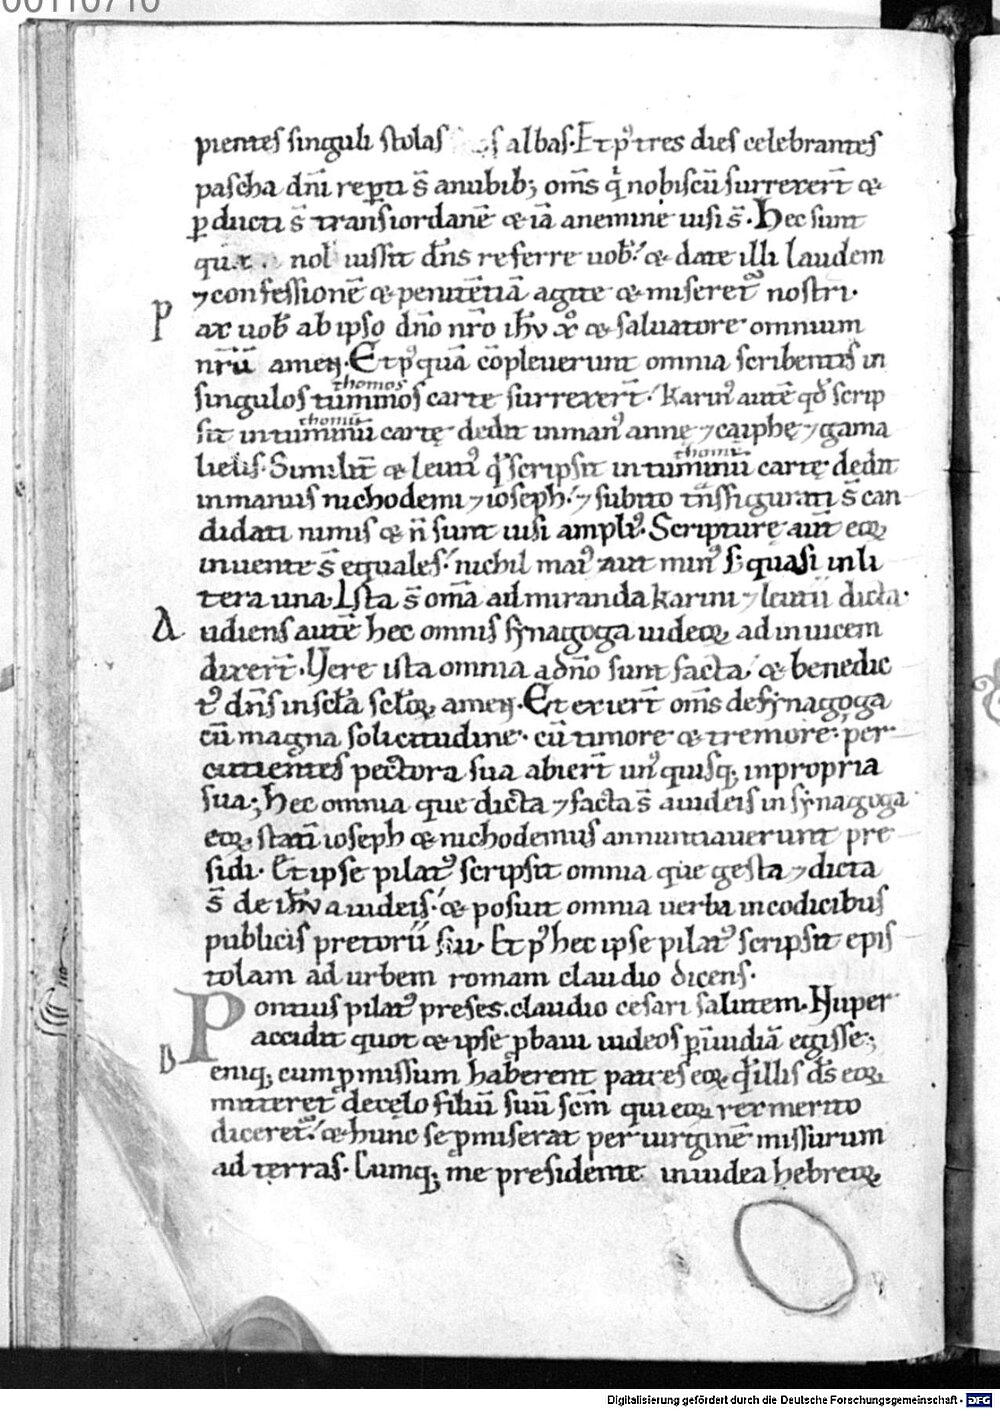 00110710
pientes singuli stolas albas. Et pꝰ tres dies celebrantes
pascha dn̄i rep̄ti s̄ a nubib; om̄s q̄ nobiscū surrexer̄t &
ꝑducti s̄ trans iordanē & iā a nemine uisi s̄. Hec sunt
iussit dn̄s referre uob̄. & date illi laudem
⁊ confessionē & penitētiā agite & miseretꝰ nostri.
Pax uob̄ ab ipso dn̄o nr̄o ih̄u xp̄o & saluatore omnium
nr̄ū amen. Et pꝰquā cōpleuerunt omnia scribentes in
thomos
singulos tuminos carte surrexer̄t. Karinꝰ autē qd̄ scrip
thomū
sit in tuminū cartę dedit in manꝰ annę ⁊ caiphę ⁊ gama
thomū
lielis. Similit̄ & leuiꝰ qd̄ scripsit in tuminū cartę dedit
in manus nichodemi ⁊ ioseph. ⁊ subito tn̄sfigurati s̄ can
didati nimis & n̄ sunt uisi ampliꝰ. Scripturę aut̄ eoꝝ
inuente s̄ equales. nichil maiꝰ aut minꝰ s; quasi in li
tera una. Ista s̄ om̄a admiranda karini ⁊ leutii dicta.
Audiens autē hec omnis synagoga iudeoꝝ ad inuicem
dixer̄t. Vere ista omnia a dn̄o sunt facta. & benedic
tꝰ dn̄s in scl̄a scl̄oꝝ amen. Et exier̄t om̄s de synagoga
cū magna solicitudine. cū timore & tremore. per
cutientes pectora sua abier̄t unꝰquisq; in propria
sua; Hec omnia que dicta ⁊ facta s̄ a iudeis in synagoga
eoꝝ, statī ioseph & nichodemus annuntiauerunt pre
sidi. Et ipse pilatꝰ scripsit omnia que gesta ⁊ dicta
s̄ de ih̄u a iudeis. & posuit omnia uerba in codicibus
publicis pretorii sui. Et pꝰ hec ipse pilatꝰ scripsit epis
tolam ad urbem romam claudio dicens.
Pontius pilatꝰ preses. claudio cesari salutem. Nuper
accidit quot & ipse ꝓbaui iudeos ꝑ inuidiā egisse;
Deniq; cum ꝓmissum haberent patres eoꝝ qd̄ illis ds̄ eoꝝ
mitteret de cęlo filiū suū scm̄ qui eoꝝ rex merito
diceretꝰ. & hunc se ꝓmiserat per uirginē missurum
ad terras. Cumq; me presidente in iudea hebreoꝝ
Digitalisierung gefördert durch die Deutsche Forschungsgemeinschaft - DFG